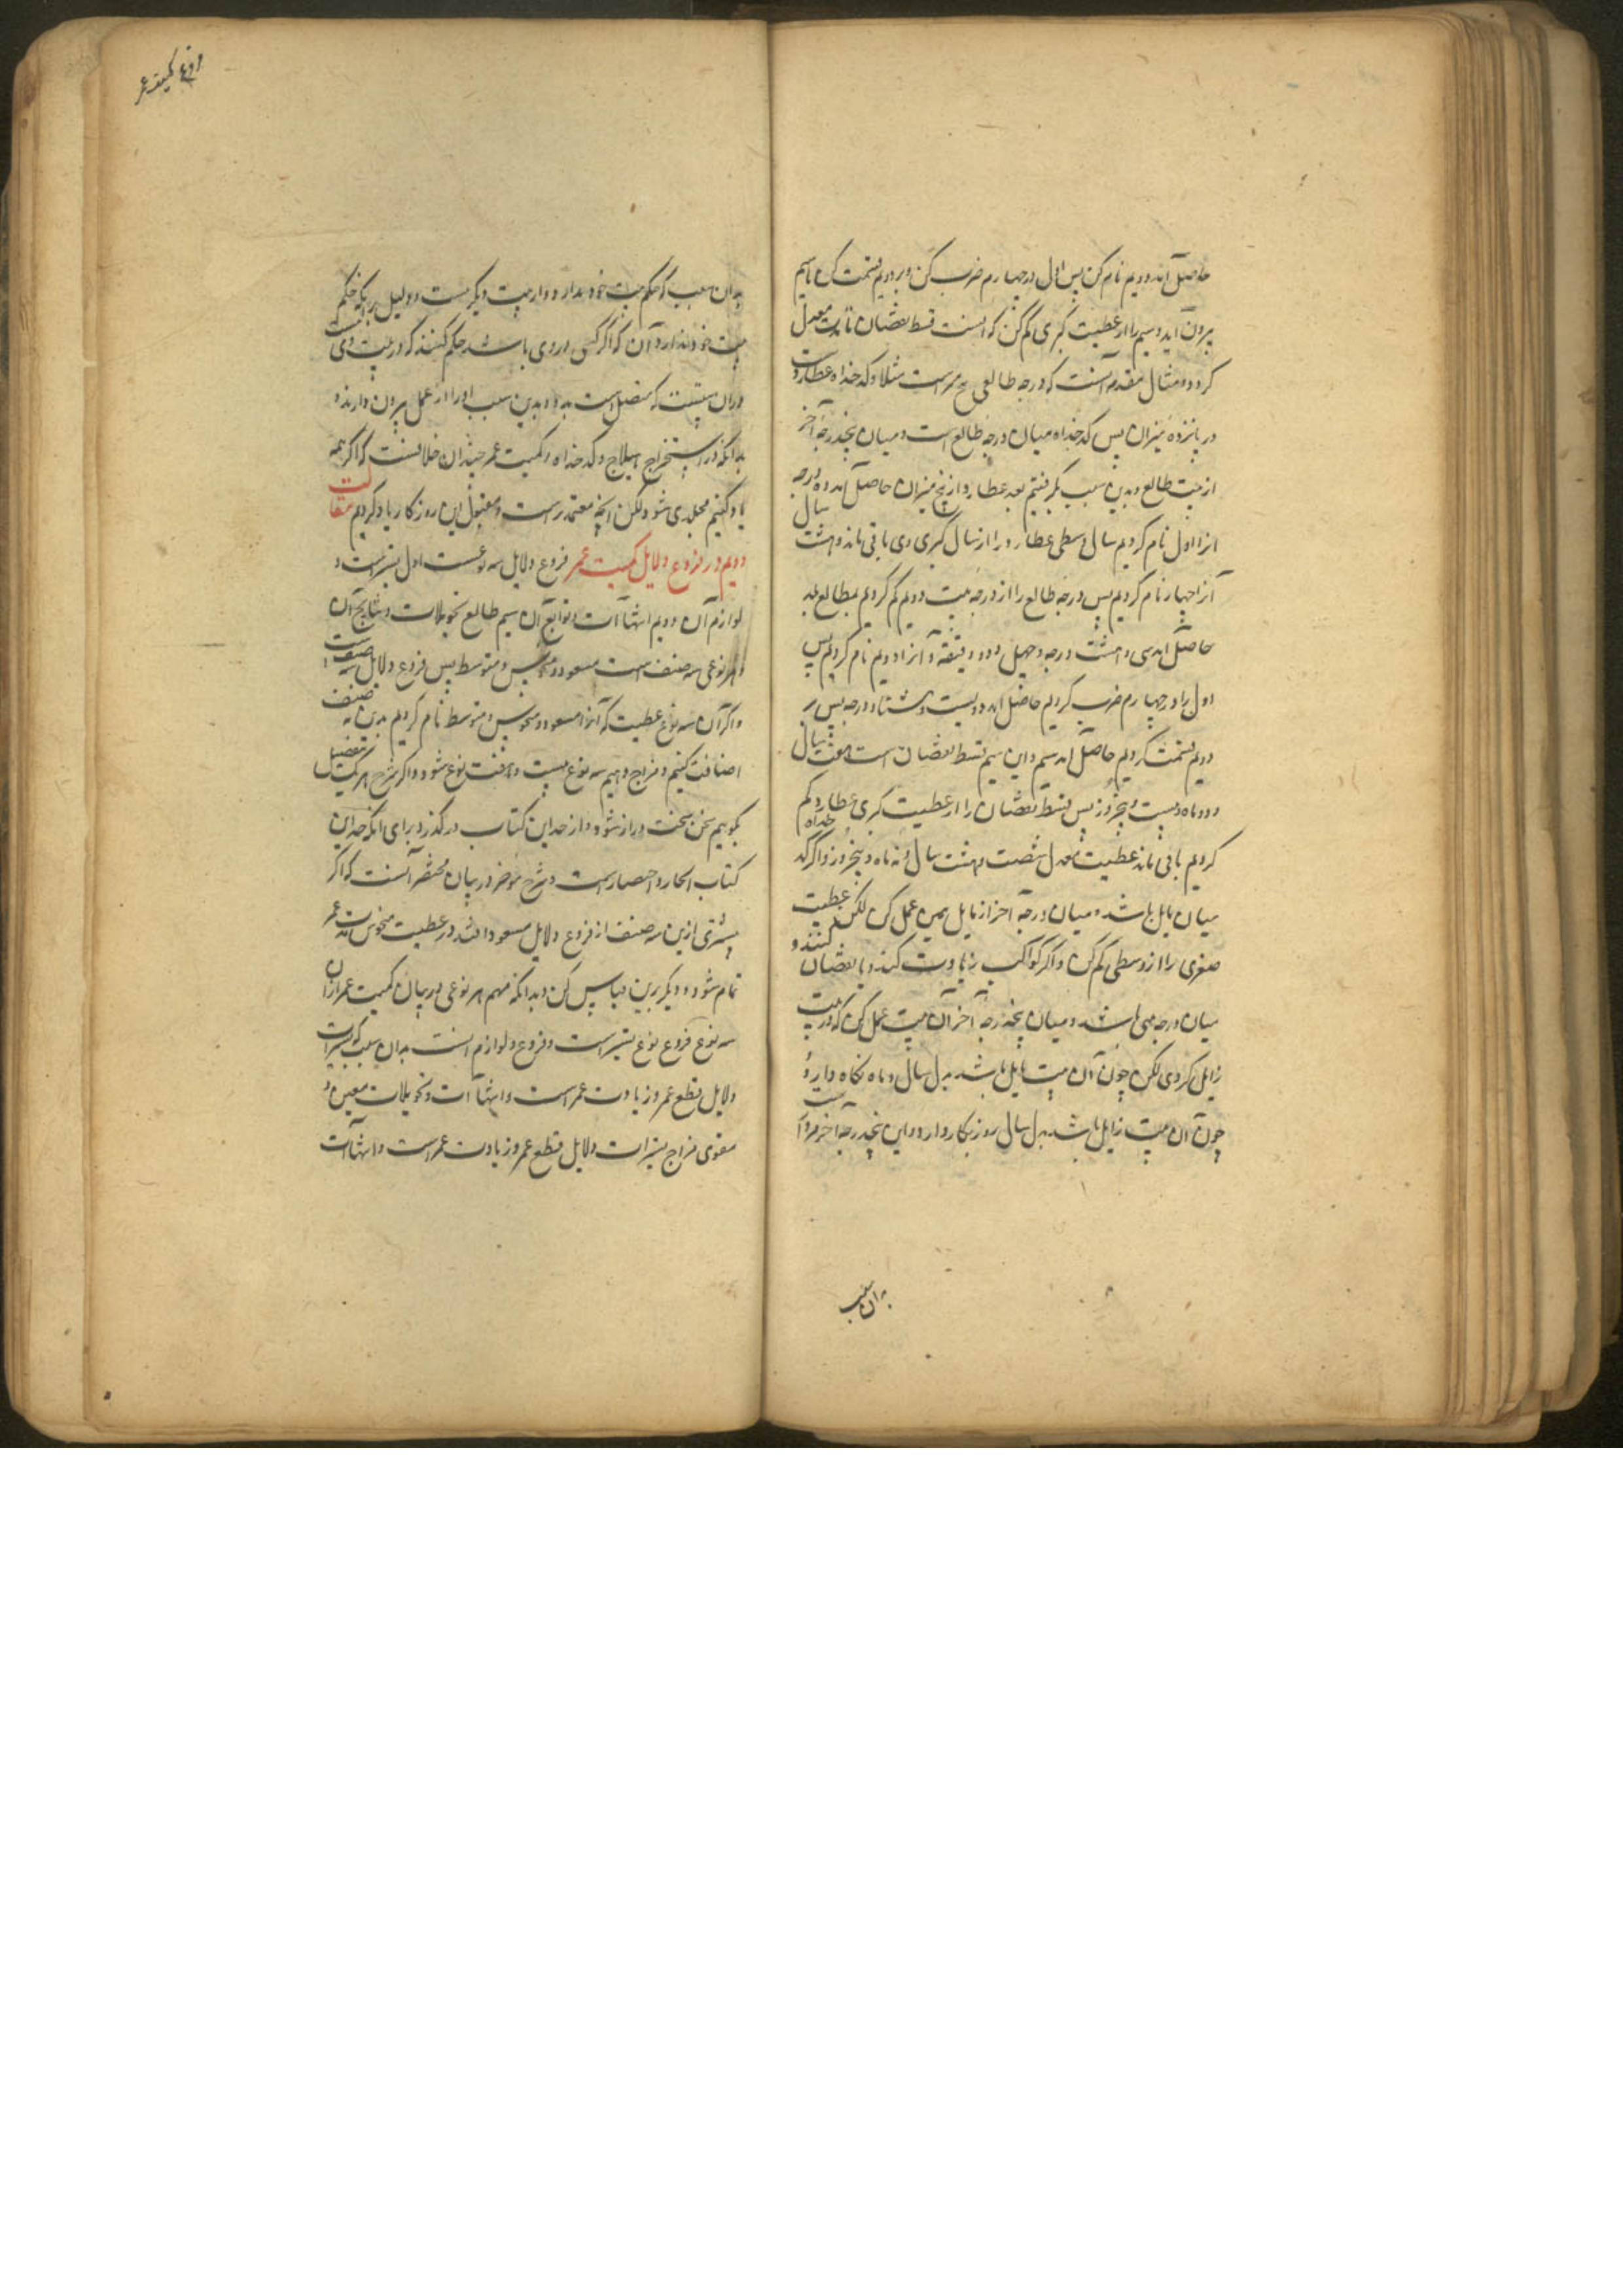 حاصل آید دویم نام کن پس اول در چهارم ضرب کن و بر دویم قسمت کن تا سیم
بیرون آید و سیم را از عطیت کبری کم کن که آنست قسط نقصان تا عطیت معدل
کردد و مثال مقدم آنست که درجه طالعی است مثلا و کدخداه عطاردست
در پانزده میزان پس کدخداه میان درجه طالع است و میان پنجدرجه آخر
از بیت طالع و بدین سبب بگرفتیم بعد عطارد از پنج میزان حاصل آمد ده درجه
انرا اول نام کردیم سال وسطی عطارد را از سال کبری وی باقی ماند و هشت سال
آنرا چهارم نام کردیم پس درجه طالع را از درجه بیت دویم کم کردیم بمطالع بلد
حاصل آمد سی و هشت درجه و چهل و دو دقیقه و آنرا دویم نام کردیم پس
اول را در چهارم ضرب کردیم حاصل آمد دویست و هشتاد درجه پس بر
دویم قسمت کردیم حاصل آمد سیم و این سیم قسط نقصان است هفت سال
و دو ماه و بیست و پنجروز پس قسط نقصان را از عطیت کبری عطارد کم
کردیم باقی ماند عطیت معدل شصت و هشت سال و نه ماه و پنجروز و اگر کدخداه
میان مایل باشد و میان درجه آخر از مایل همین عمل کن لکن عطیت
صغری را از وسطی کم کن و اگر کواکب زیادت کنند و یا نقصان کنند و
میان درجه باشد و میان پنجدرجه آخر آن بیت عمل کن که در بیت
زایل کردی لکن چون آن بیت مایل باشد بدل سال و ماه نکاه دار و
چون آن بیت زایل باشد بدل سال روز بکار دارد و این پنجدرجه آخر
بدان سبب
فروع کمیت عمر
بدان سبب که حکم بیت خود ندارد و از بیت دیکر است و دلیل بر آنکه حکم
بیت خود ندارد آن که اگر کسی در وی باشد حکم کنند که در بیت وی است
در آن بیتست که متصل است بدو و بدین سبب او را از عمل بیرون دارند و
بدانکه در استخراج هیلاج و کدخداه و کمیت عمر چندان خلافست که اگر همه
یاد کنیم مجلدی شود لکن آنچه معتمد است و مقبول این روزکار یاد کردیم مقالت
دویم در فروع دلایل کمیت عمر فروع دلایل سه نوعست اول تسییر است و
لوازم آن دویم انتهاآت و توابع آن سیم طالع تحویلات و نتایج آن
و هر نوعی سه صنف است مسعود و منحوس و متوسط پس فروع دلایل سه صنف است
و اگر آن سه نوع عطیت که آنرا مسعود و منحوس و متوسط نام کردیم بدین نه صنف
اضافت کنیم و مزاج دهیم سه نوع بیست و هفت نوع شود و اگر شرح هر یک بتفضیل
بگوییم سخن سخت دراز شود و از حد این کتاب در گذرد برای آنکه حد این
کتاب ایجاز و اختصار است و شرح موخر و بیان مختصر آنست که اگر
بیشتری ازین سه صنف از فروع دلایل مسعود افتد در عطیت منحوس مدت عمر
تمام شود و دیکر برین قیاس کن و بدانکه مهم هر نوعی در بیان کمیت عمر از آن
سه نوع فروع نوع تسییر است و فروع و لوازم آنست بدان سبب که تسییرات
دلایل قطع عمر و زیادت عمر است و انتهاآت و تحویلات معین و
مقوی مزاج تسییرات دلایل قطع عمر و زیادت عمر است و انتهاآت